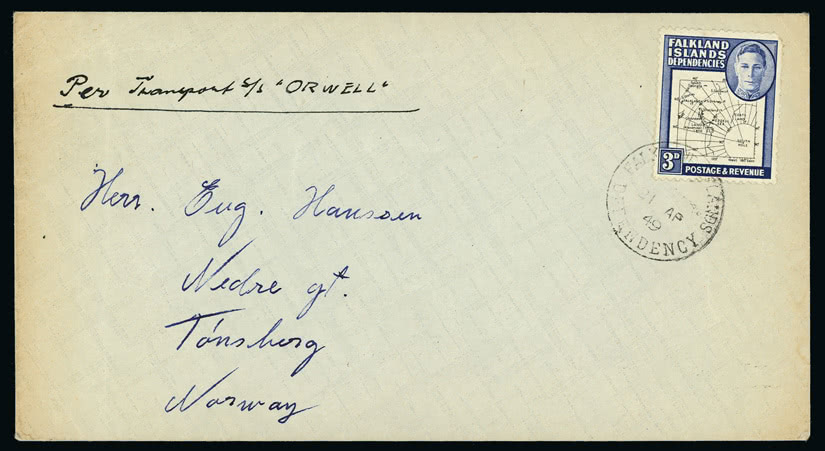 Per Transport s/s "ORWELL"
FALKLAND
ISLANDS
DEPENDENCIES
3D
POSTAGE & REVENUE
21 AP
49
Herr. Eug. Hanssen
Nedre gt.
Tönsberg
Norway